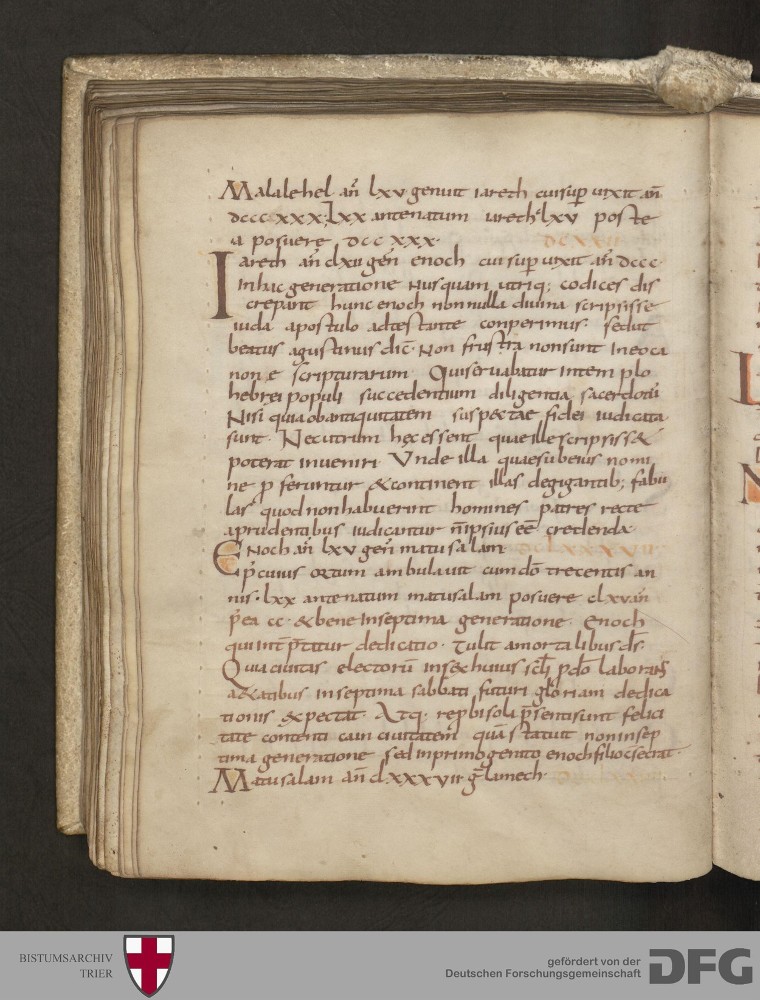 Malalehel· añ lxv genuit iareth cui sup̱ uixit añ
dcccxxx· lxx ante natum iareth clxv poste
a posuere dccxxx·
Iareth añ clxii geñ enoch cui sup̱ uixit añ dccc
In hac generatione nusquam utriq; codices dis
crepant hunc enoch non nulla diuina scripsisse
iuda apostulo adtestante conperimus· sed ut
beatus agustinus dic̄· Non frustra non sunt In eo ca
none scripturarum· Qui seruabatur In templo
hebrei populi succedentium diligentia sacerdotū
Nisi quia ob antiquitatem suspectae fidei iudicata
sunt· Nec utrum hęc essent quae ille scripsiss&
poterat inueniri· Unde illa quae sub eius nomi
ne p̱ feruntur & continent illas de gigantib; fabu
las quod non habuerint homines patres recte
a prudentibus iudicantur n̄ ipsius eē credenda·
Enoch añ lxv geñ matusalam
p̱ cuius ortum ambulauit cum dō trecentis an
nis· lxx ante natum matusalam posuere clxv añ
p̄ ea cc· & bene In septima generatione· Enoch
qui int̄p̄tatur dedicatio· tulit a mortalibus d̄s·
Quia ciuitas electorū In sex huius sc̄li p̱ dō laborans
aetatibus In septima sabbati futuri gloriam dedica
tionis expectat· Atq· repbi soli p̄sentis sunt felici
tate contenti cain ciuitatem quā statuit non in sep
tima generatione sed in primogenito enoch filio c̄secrat·
Matusalam añ clxxxvii ḡ lamech·
BISTUMSARCHIV
TRIER
gefördert von der
Deutschen Forschungsgemeinschaft
DFG